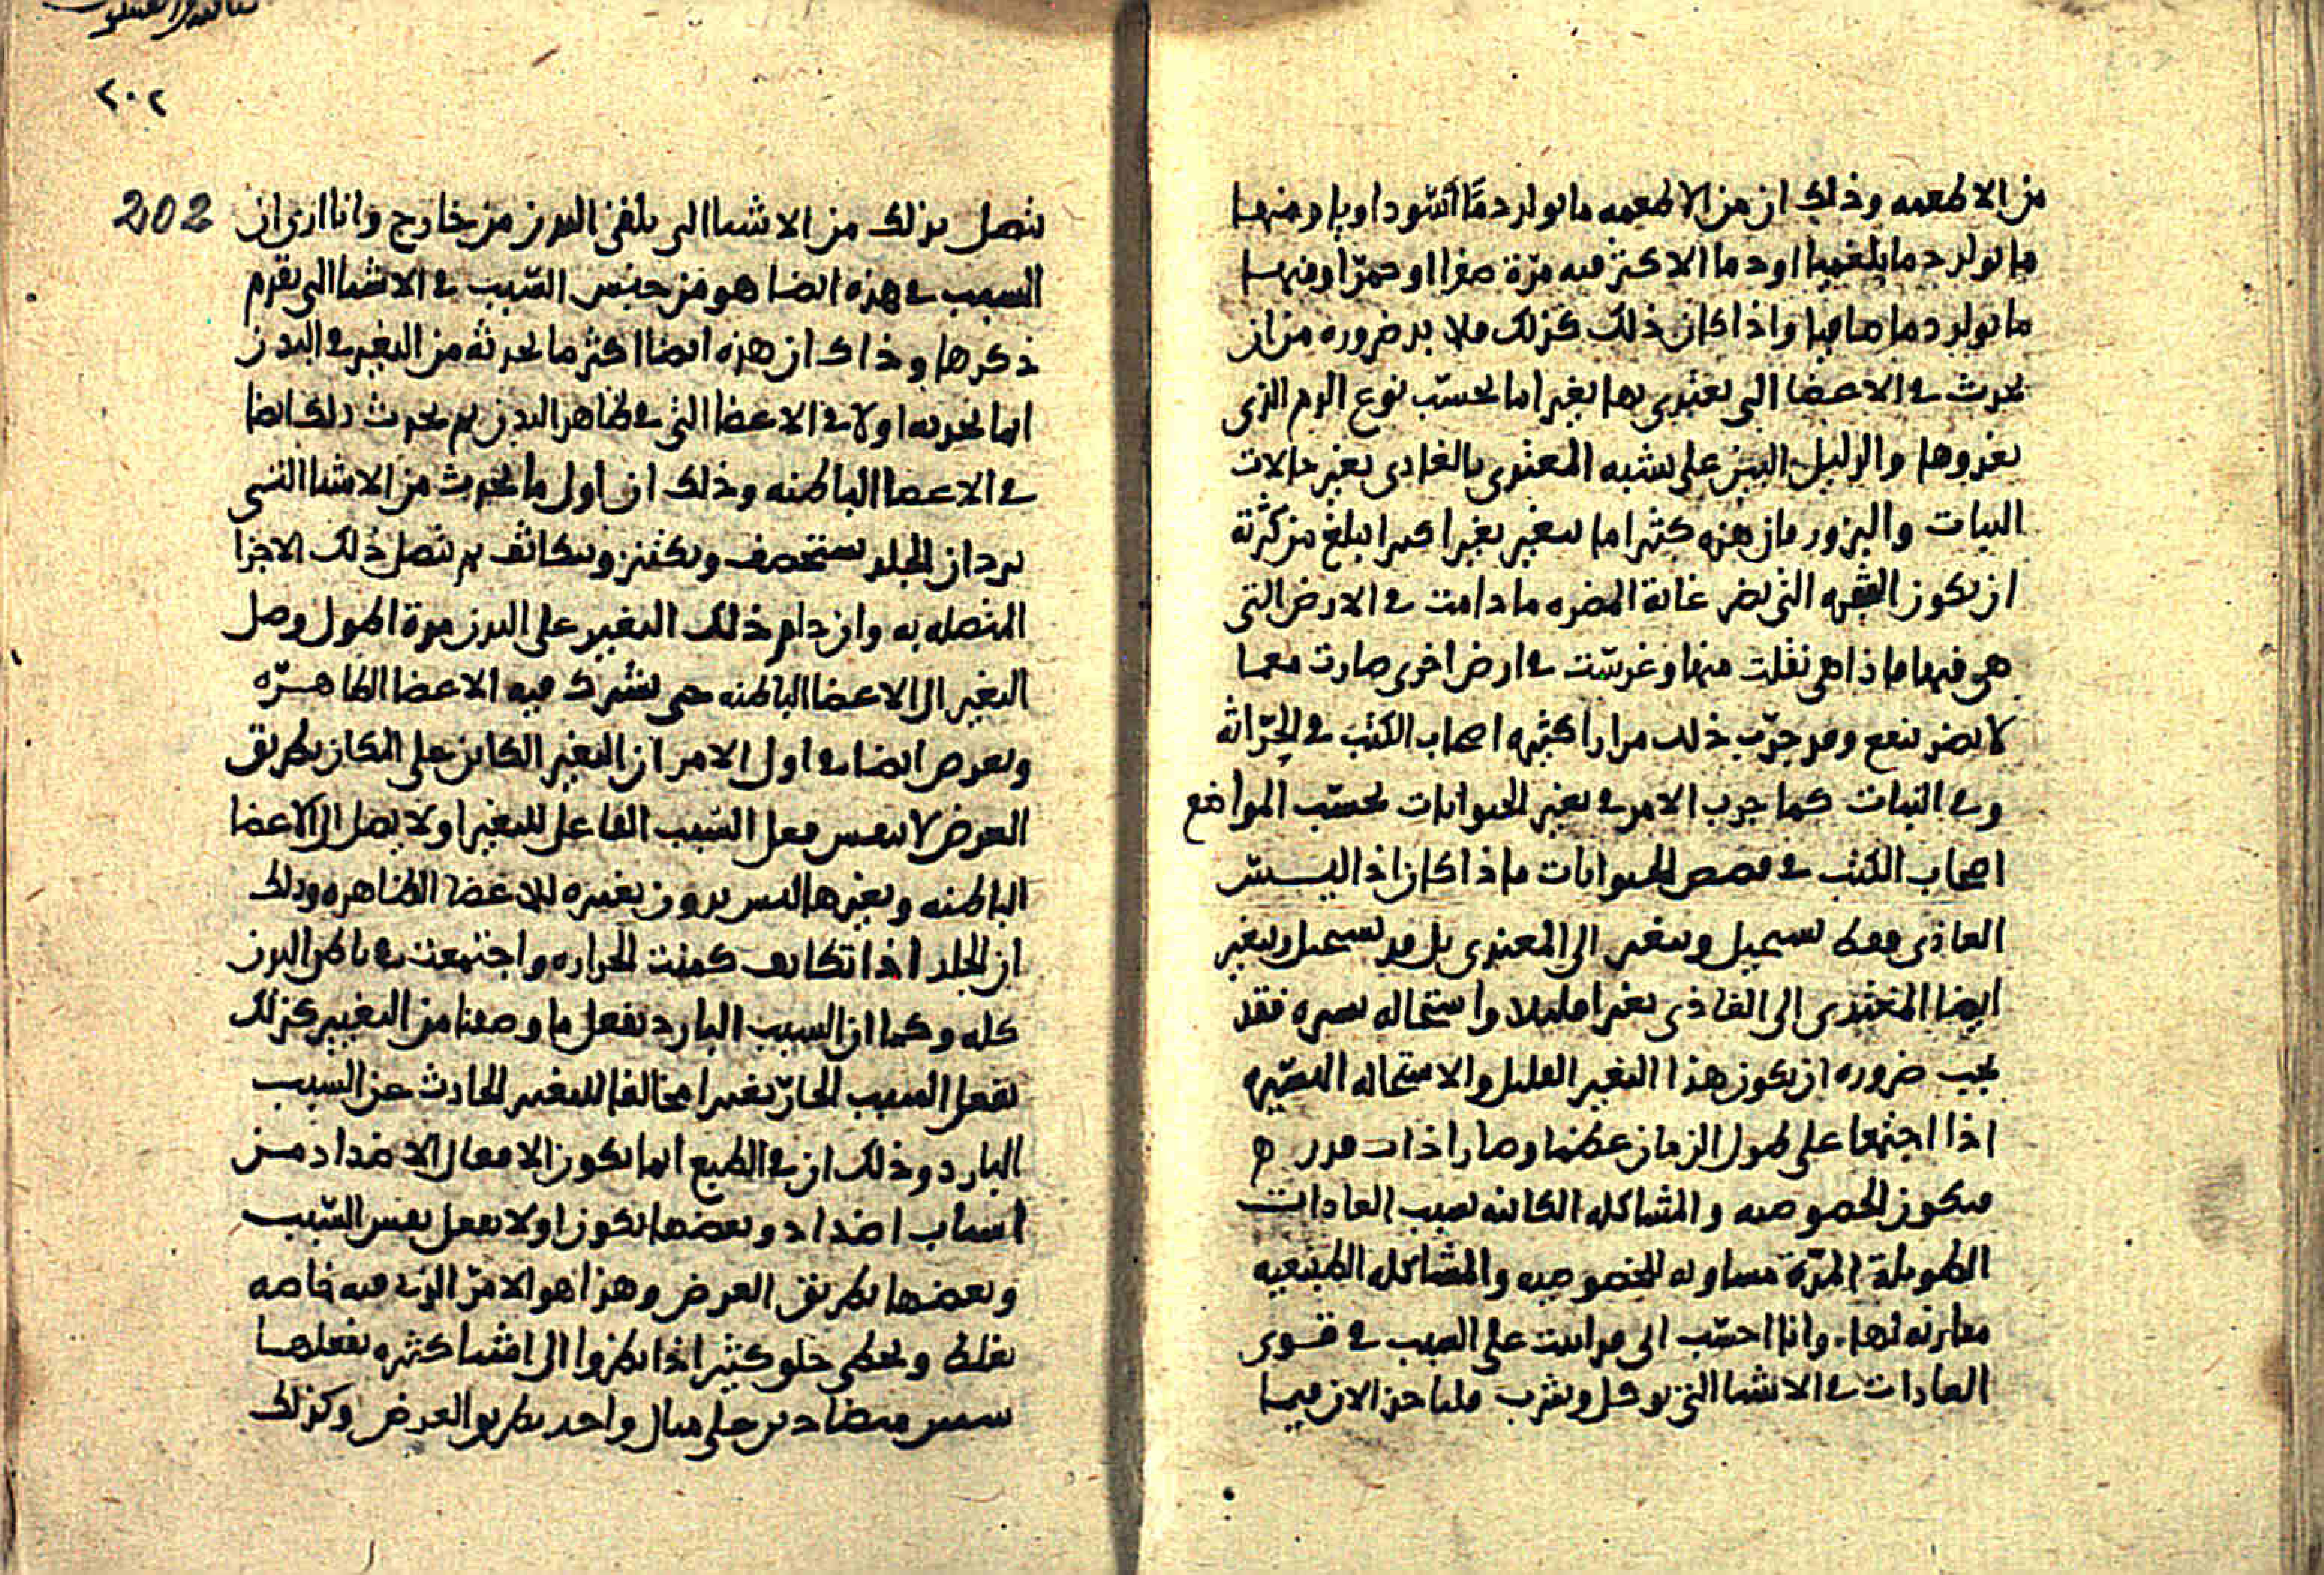 من الاطعمه وذلك ان من الاطعمه ما يولد دمًا اسودا وياو منها
ما يولد دما بلغميا او دما الاكثر فيه مرّة صفرا او حمرا ومنها
ما يولد دما ماييا واذا كان ذلك كذلك فلا بد ضروره من ان
يحدث في الاعضا التي تغتذي بها تغير اما بحسب نوع الدم الذي
يغذوها والدليل البين على تشبه المغتذى بالغاذى تغير حالات
النبات والبزور فان هذه كثيرا ما تتغير تغيرا كبيرا يبلغ من كثرته
ان تكون الشجره التي تضر غاية المضره ما دامت في الارض التي
هي فيها فاذا هي نقلت منها وغرست في ارض اخرى صارت معما
لا تضر تنفع وقد جرّب ذلك مرارا كثيره اصحاب الكتب في الحراثه
وفي النبات كما جرب الامر في تغير الحيوانات بحسب المواضع
اصحاب الكتب في قصص الحيوانات فاذا كان اذا ليس
الغاذى فقط يستحيل ويتغير الى المغتذى بل قد يستحيل ويتغير
ايضا المغتذى الى الغاذى تغيرا قليلا واستحاله يسيره فقد
يجب ضروره ان يكون هذا التغير القليل والاستحاله اليسيره
اذا اجتمعا على طول الزمان عظما وصارا ذات قدر ه
فتكون الخصوصيه والمشاكله الكائنه بسبب العادات
الطويلة المدّة مساويه للخصوصيه والمشاكله الطبيعيه
مقارنه لها. وانا احسب اني قد اتيت على السبب في قوى
العادات في الاشيا التي توكل وتشرب فلناخذ الان فيما
٢٠٢
202
يتصل بذلك من الاشيا التي تلقى البدن من خارج وانا ارى ان
السبب في هذه ايضا هو من جنس السّبب في الاشيا التي تقدم
ذكرها وذاك ان هذه ايضا اكثر ما تحدثه من التغير في البدن
انما تحدثه اولا في الاعضا التي في ظاهر البدن ثم يحدث ذلك ايضا
في الاعضا الباطنه وذلك ان اول ما يحدث من الاشيا التي
تبرد ان الجلد يستحصف ويكتنز ويتكاثف ثم تتصل ذلك الاجزا
المتصله به وان دام ذلك التغير على البدن مدة اطول وصل
التغير الى الاعضا الباطنه حتى تشرك فيه الاعضا الظاهرّه
ويعرض ايضا في اول الامر ان التغير الكاين على المكان بطريق
العرض لا بنفس فعل السّبب الفاعل للتغير اولا يصل الى الاعضا
الباطنه وتغيرها ليس بدون تغيره للاعضا الظاهره وذلك
ان الجلد اذا تكاثف كمنت الحراره واجتمعت في باطن البدن
كله وكما ان السبب البارد يفعل ما وصفنا من التغيير كذلك
يفعل السبب الحارّ تغيرا مخالفا للتغير الحادث عن السبب
البارد وذلك ان في الطبع انما تكون الافعال الاضداد من
اسباب اضداد وبعضها يكون اولا بفعل نفس السّبب
وبعضها بطريق العرض وهذا هو الامرّ الذي فيه خاصه
يغلط ويخطى خلو كثير اذا نظروا الى اشيا كثيره يفعلها
سببين متضادين على مثال واحد بطريق العرض وكذلك